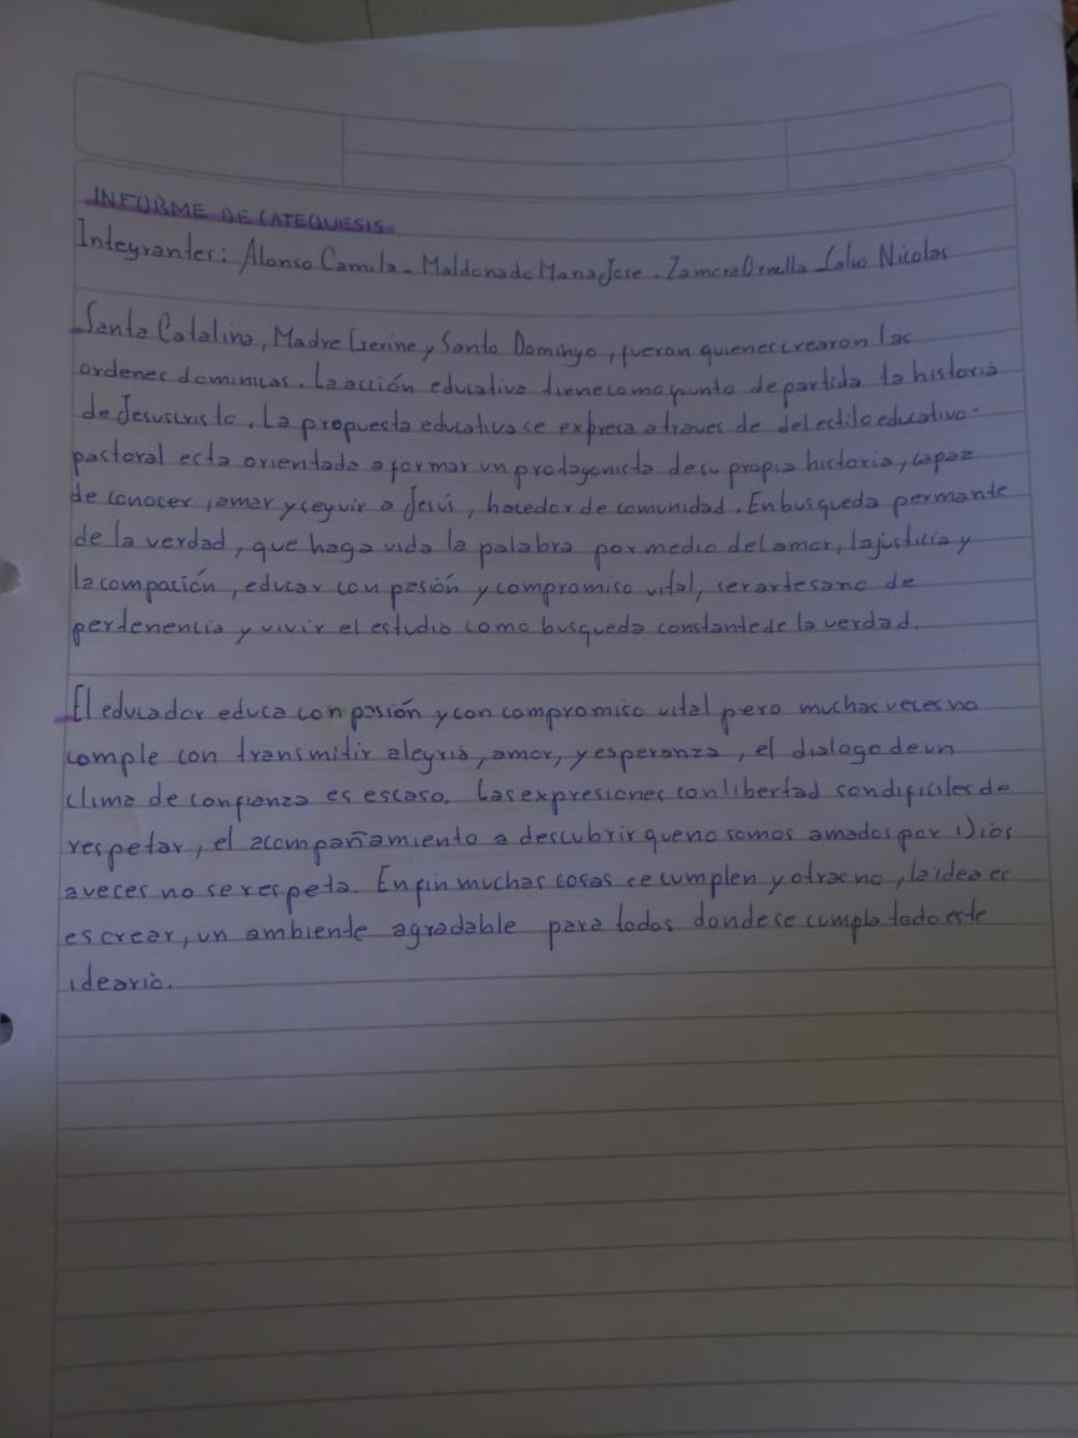 INFORME DE CATEQUESIS.
Integrantes: Alonso Camila - Maldonado Maria Jose - Zamora Ornella - Nicolas
Santa Catalina, Madre Gerine y Santo Domingo, fueron quienes crearon las
ordenes dominicas. La acción educativa tiene como punto de partida la historia
de Jesuscristo. La propuesta educativa se expresa a traves de del estilo educativo-
pastoral esta orientada a formar un protagonista de su propia historia, capaz
de conocer, amar y seguir a Jesús, hacedor de comunidad. En busqueda permante
de la verdad, que haga vida la palabra por medio del amor, la justicia y
la compación, educar con pasión y compromiso vital, ser artesano de
pertenencia y vivir el estudio como busqueda constante de la verdad.
El educador educa con pasión y con compromiso vital pero muchas veces no
comple con transmitir alegria, amor, y esperanza, el dialogo de un
clima de confianza es escaso. Las expresiones con libertad son dificiles de
respetar, el acompañamiento a descubrir que no somos amados por Dios
a veces no se respeta. En fin muchas cosas se cumplen y otras no, la idea es
es crear, un ambiente agradable para todos donde se cumpla todo este
ideario.